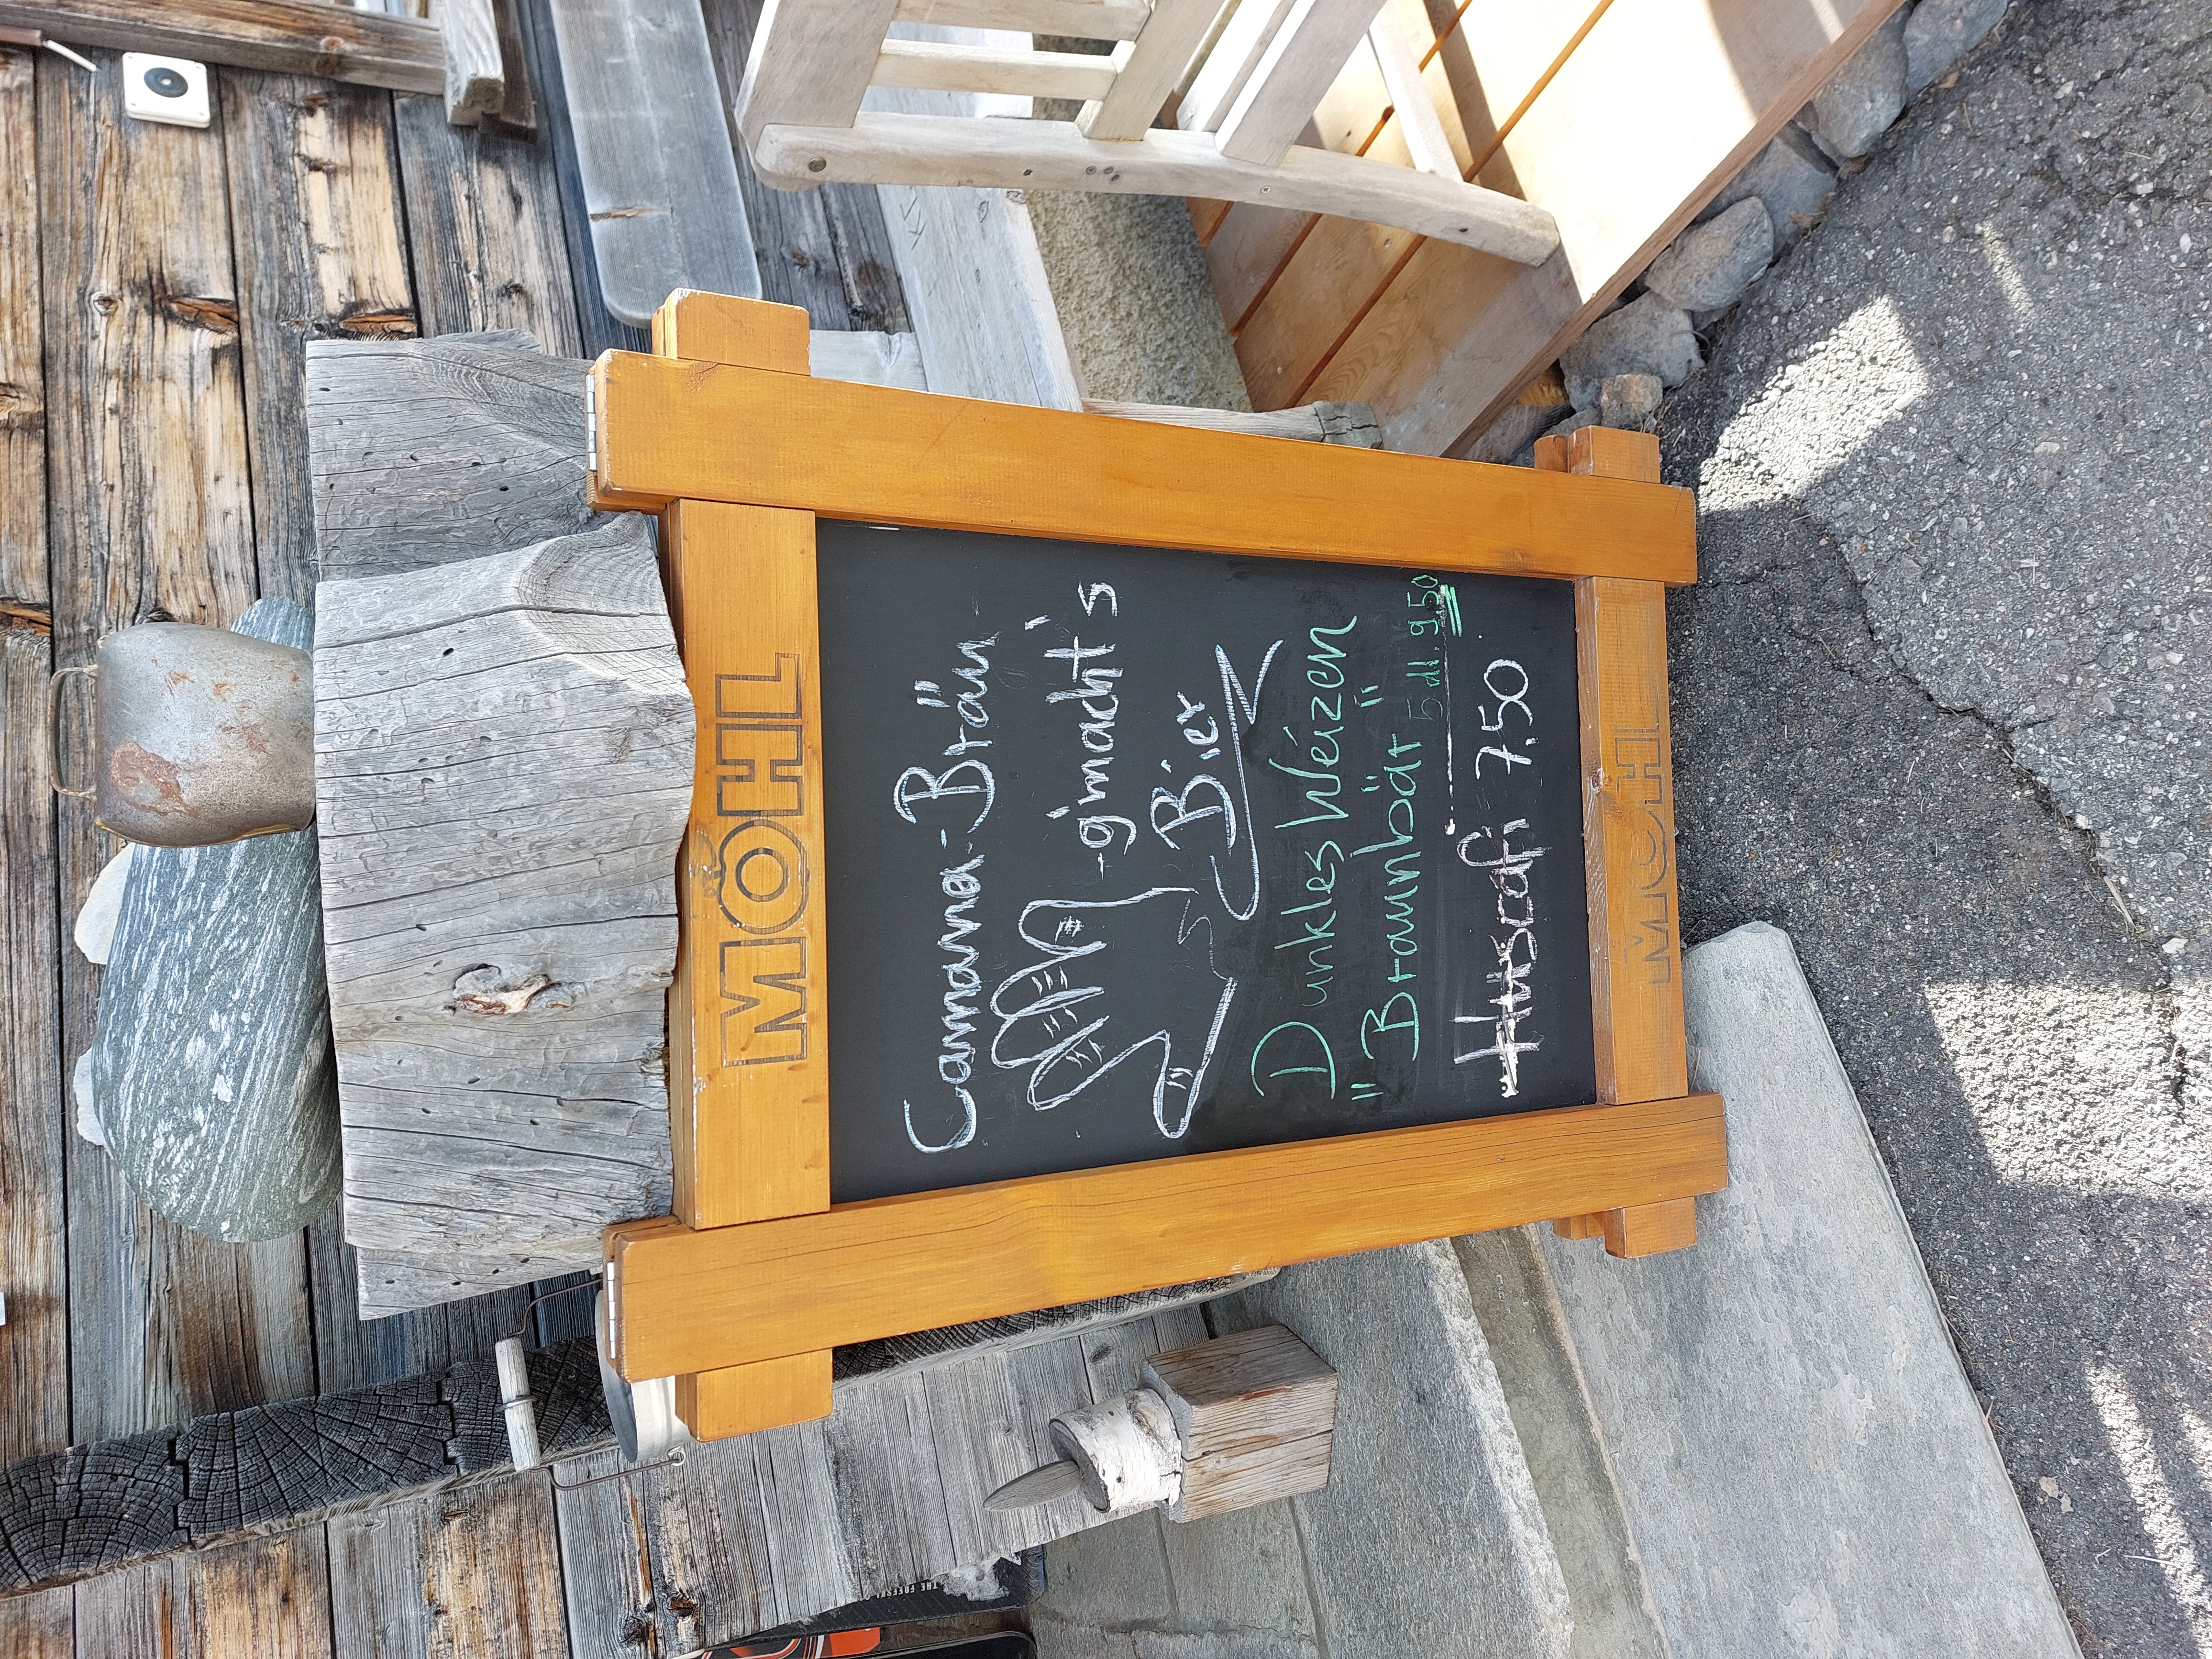 MÖHL
Camanna-Bräu
-g'macht's
Bier
Dunkles Weizen
"Braunbär" 5 dl. 9.50
Huscafi 7.50
MÖHL